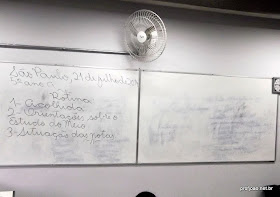 São Paulo, 21 de julho de
5º ano
Rotina
1- Acolhida
2- Orientações sobre o
Estudo do Meio
3- Situação das notas
prancao.net.br